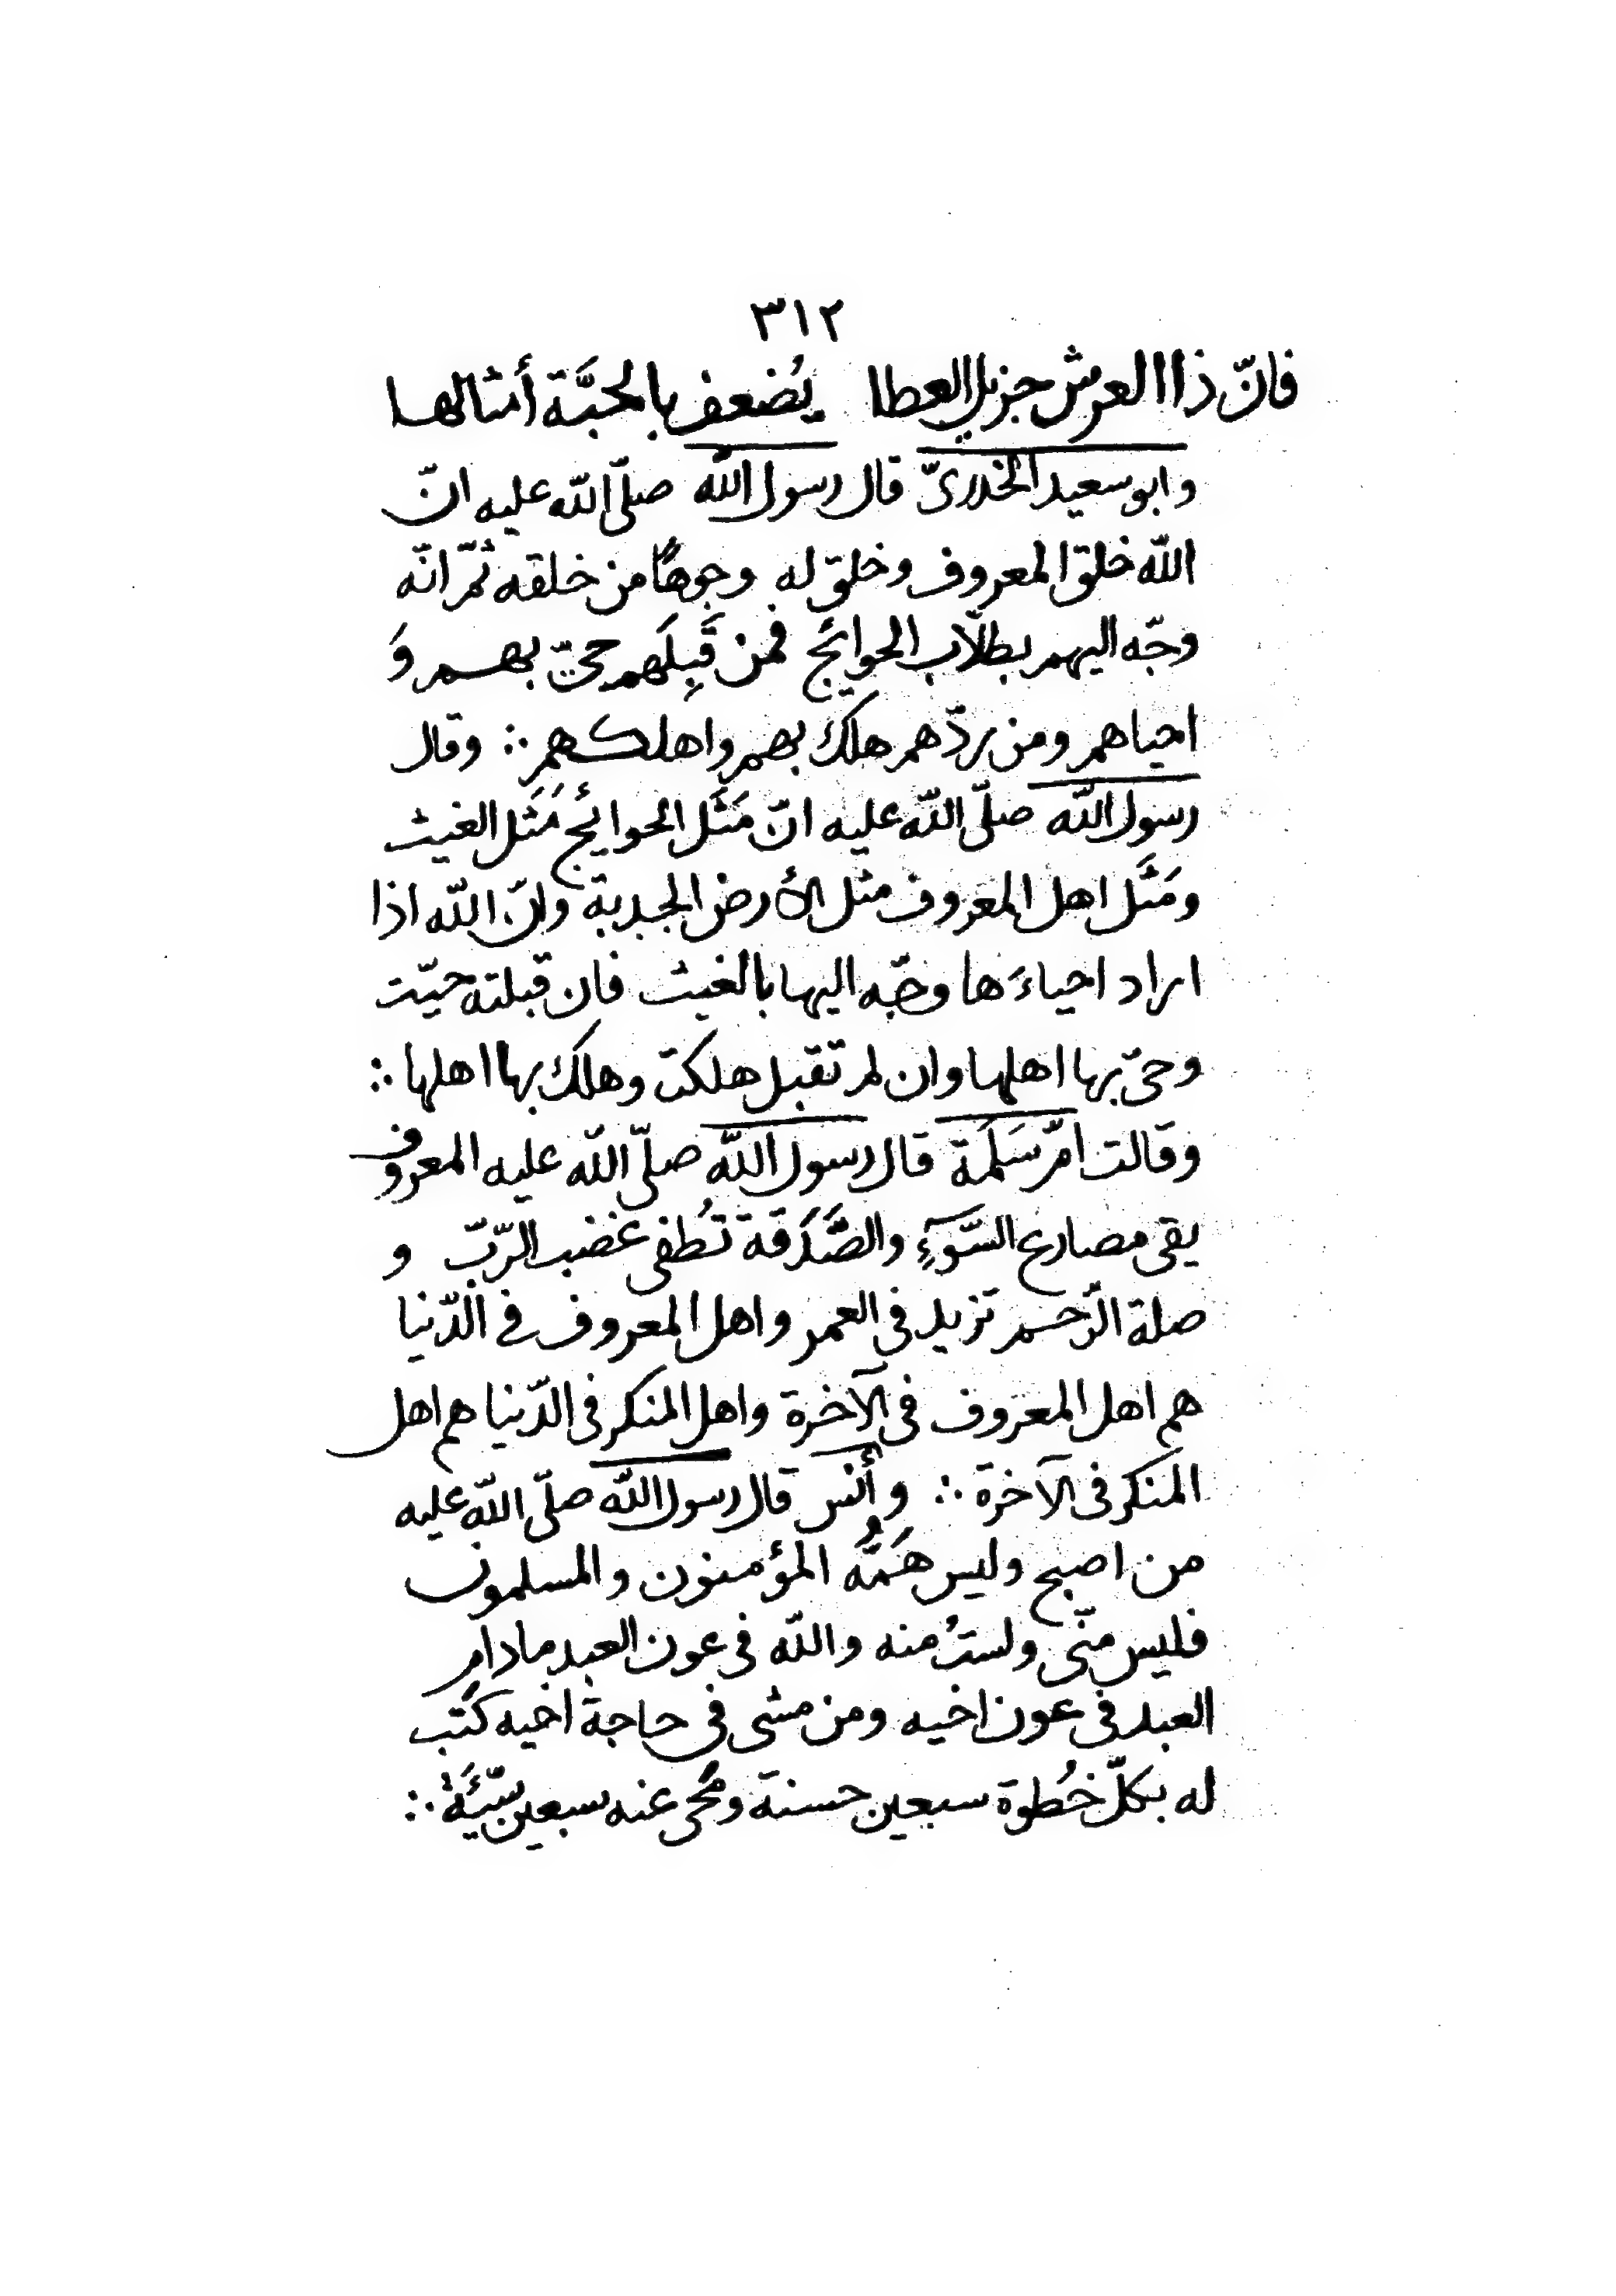 ٣١٢
فانّ ذا العرش جزيل العطا يُضعف بالحبَّة أمثالها
وابو سعيد الخدرىّ قال رسول الله صلّى الله عليه انّ
الله خلق المعروف وخلق له وجوهًا من خلقه ثمّ انّه
وجّه اليهم بطلّاب الحوائج فمن قَبِلَهم حيّ بهم وَ
احياهم ومن ردّهم هلك بهم واهلكهم ∴ وقال
رسول الله صلّى الله عليه انّ مَثَل الحوائج مَثَل الغيث
ومَثَل اهل المعروف مثل الأرض الجدبة وانّ الله اذا
اراد احياءَها وجّه اليها بالغيث فان قبلته حيّت
وحيّ بها اهلها وان لم تقبل هلكت وهلك بها اهلها ∴
وقالت امّ سَلَمَة قال رسول الله صلّى الله عليه المعروف
يقى مصارع السَّوءِ والصَّدَقة تُطفى غضب الرّبّ و
صلة الرّحم تزيد فى العمر واهل المعروف فى الدّنيا
هم اهل المعروف فى الآخرة واهل المنكر فى الدّنيا هم اهل
المنكر فى الآخرة ∴ وأنس قال رسول الله صلّى الله عليه
من اصبح وليس هَمُّه المؤمنون والمسلمون
فليس منّى ولستُ منه والله فى عون العبد مادام
العبد فى عون اخيه ومن مشى فى حاجة اخيه كُتب
له بكلّ خُطوة سبعين حسنة ومُحى عنه سبعين سيّئَة ∴